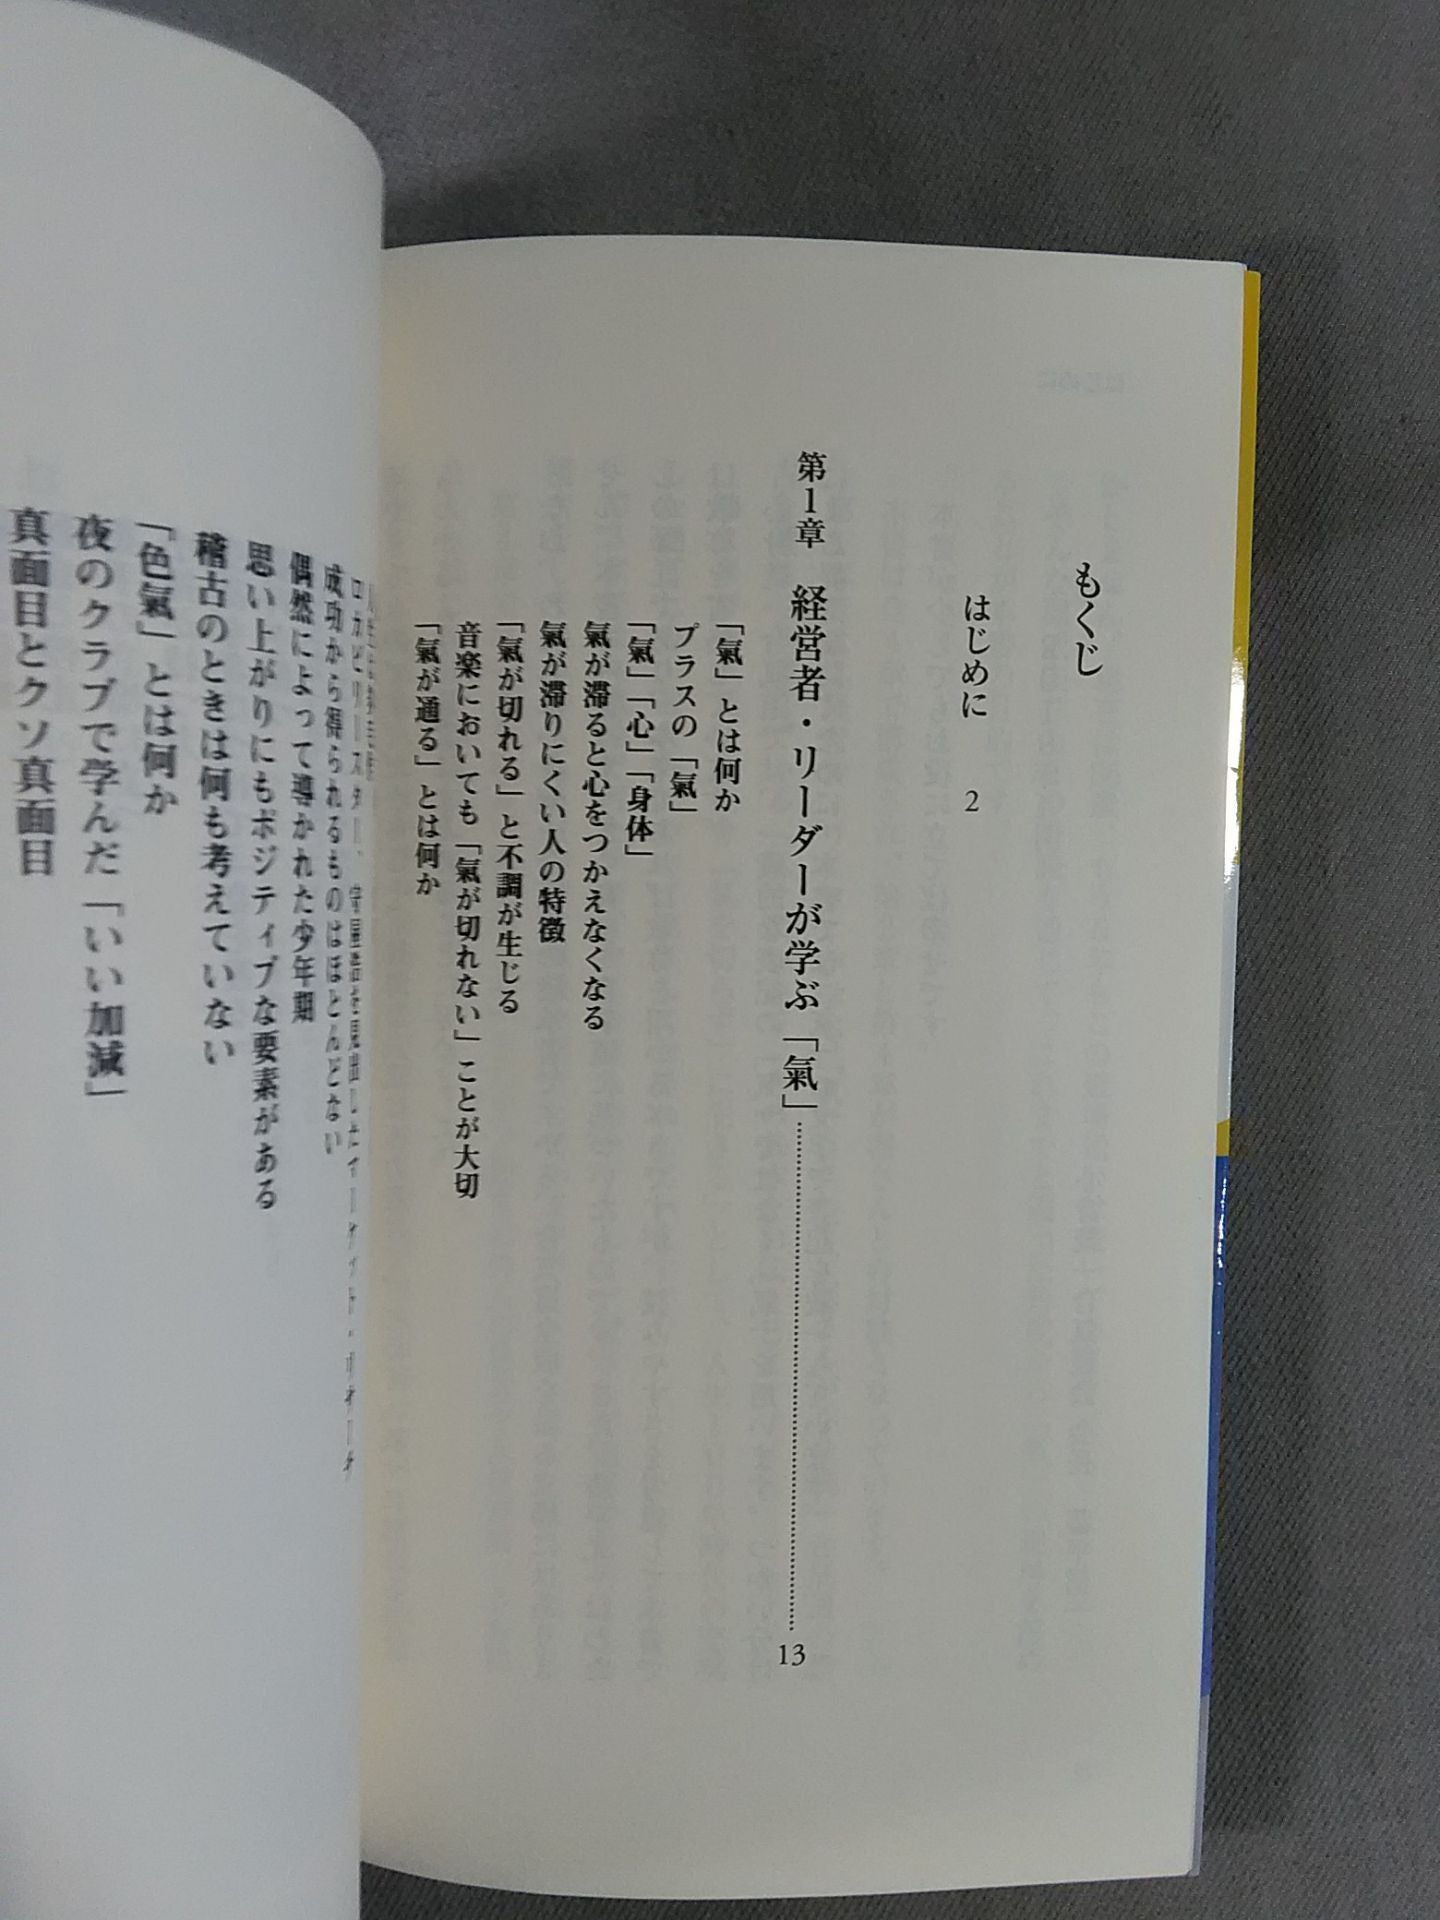 もくじ
はじめに 2
第1章 経営者・リーダーが学ぶ「氣」 13
「氣」とは何か
プラスの「氣」
「氣」「心」「身体」
氣が滞ると心をつかえなくなる
氣が滞りにくい人の特徴
「氣が切れる」と不調が生じる
音楽においても「氣が切れない」ことが大切
「氣が通る」とは何か
成功から得られるものはほとんどない
偶然によって導かれた少年期
思い上がりにもポジティブな要素がある
稽古のときは何も考えていない
「色氣」とは何か
夜のクラブで学んだ「いい加減」
真面目とクソ真面目